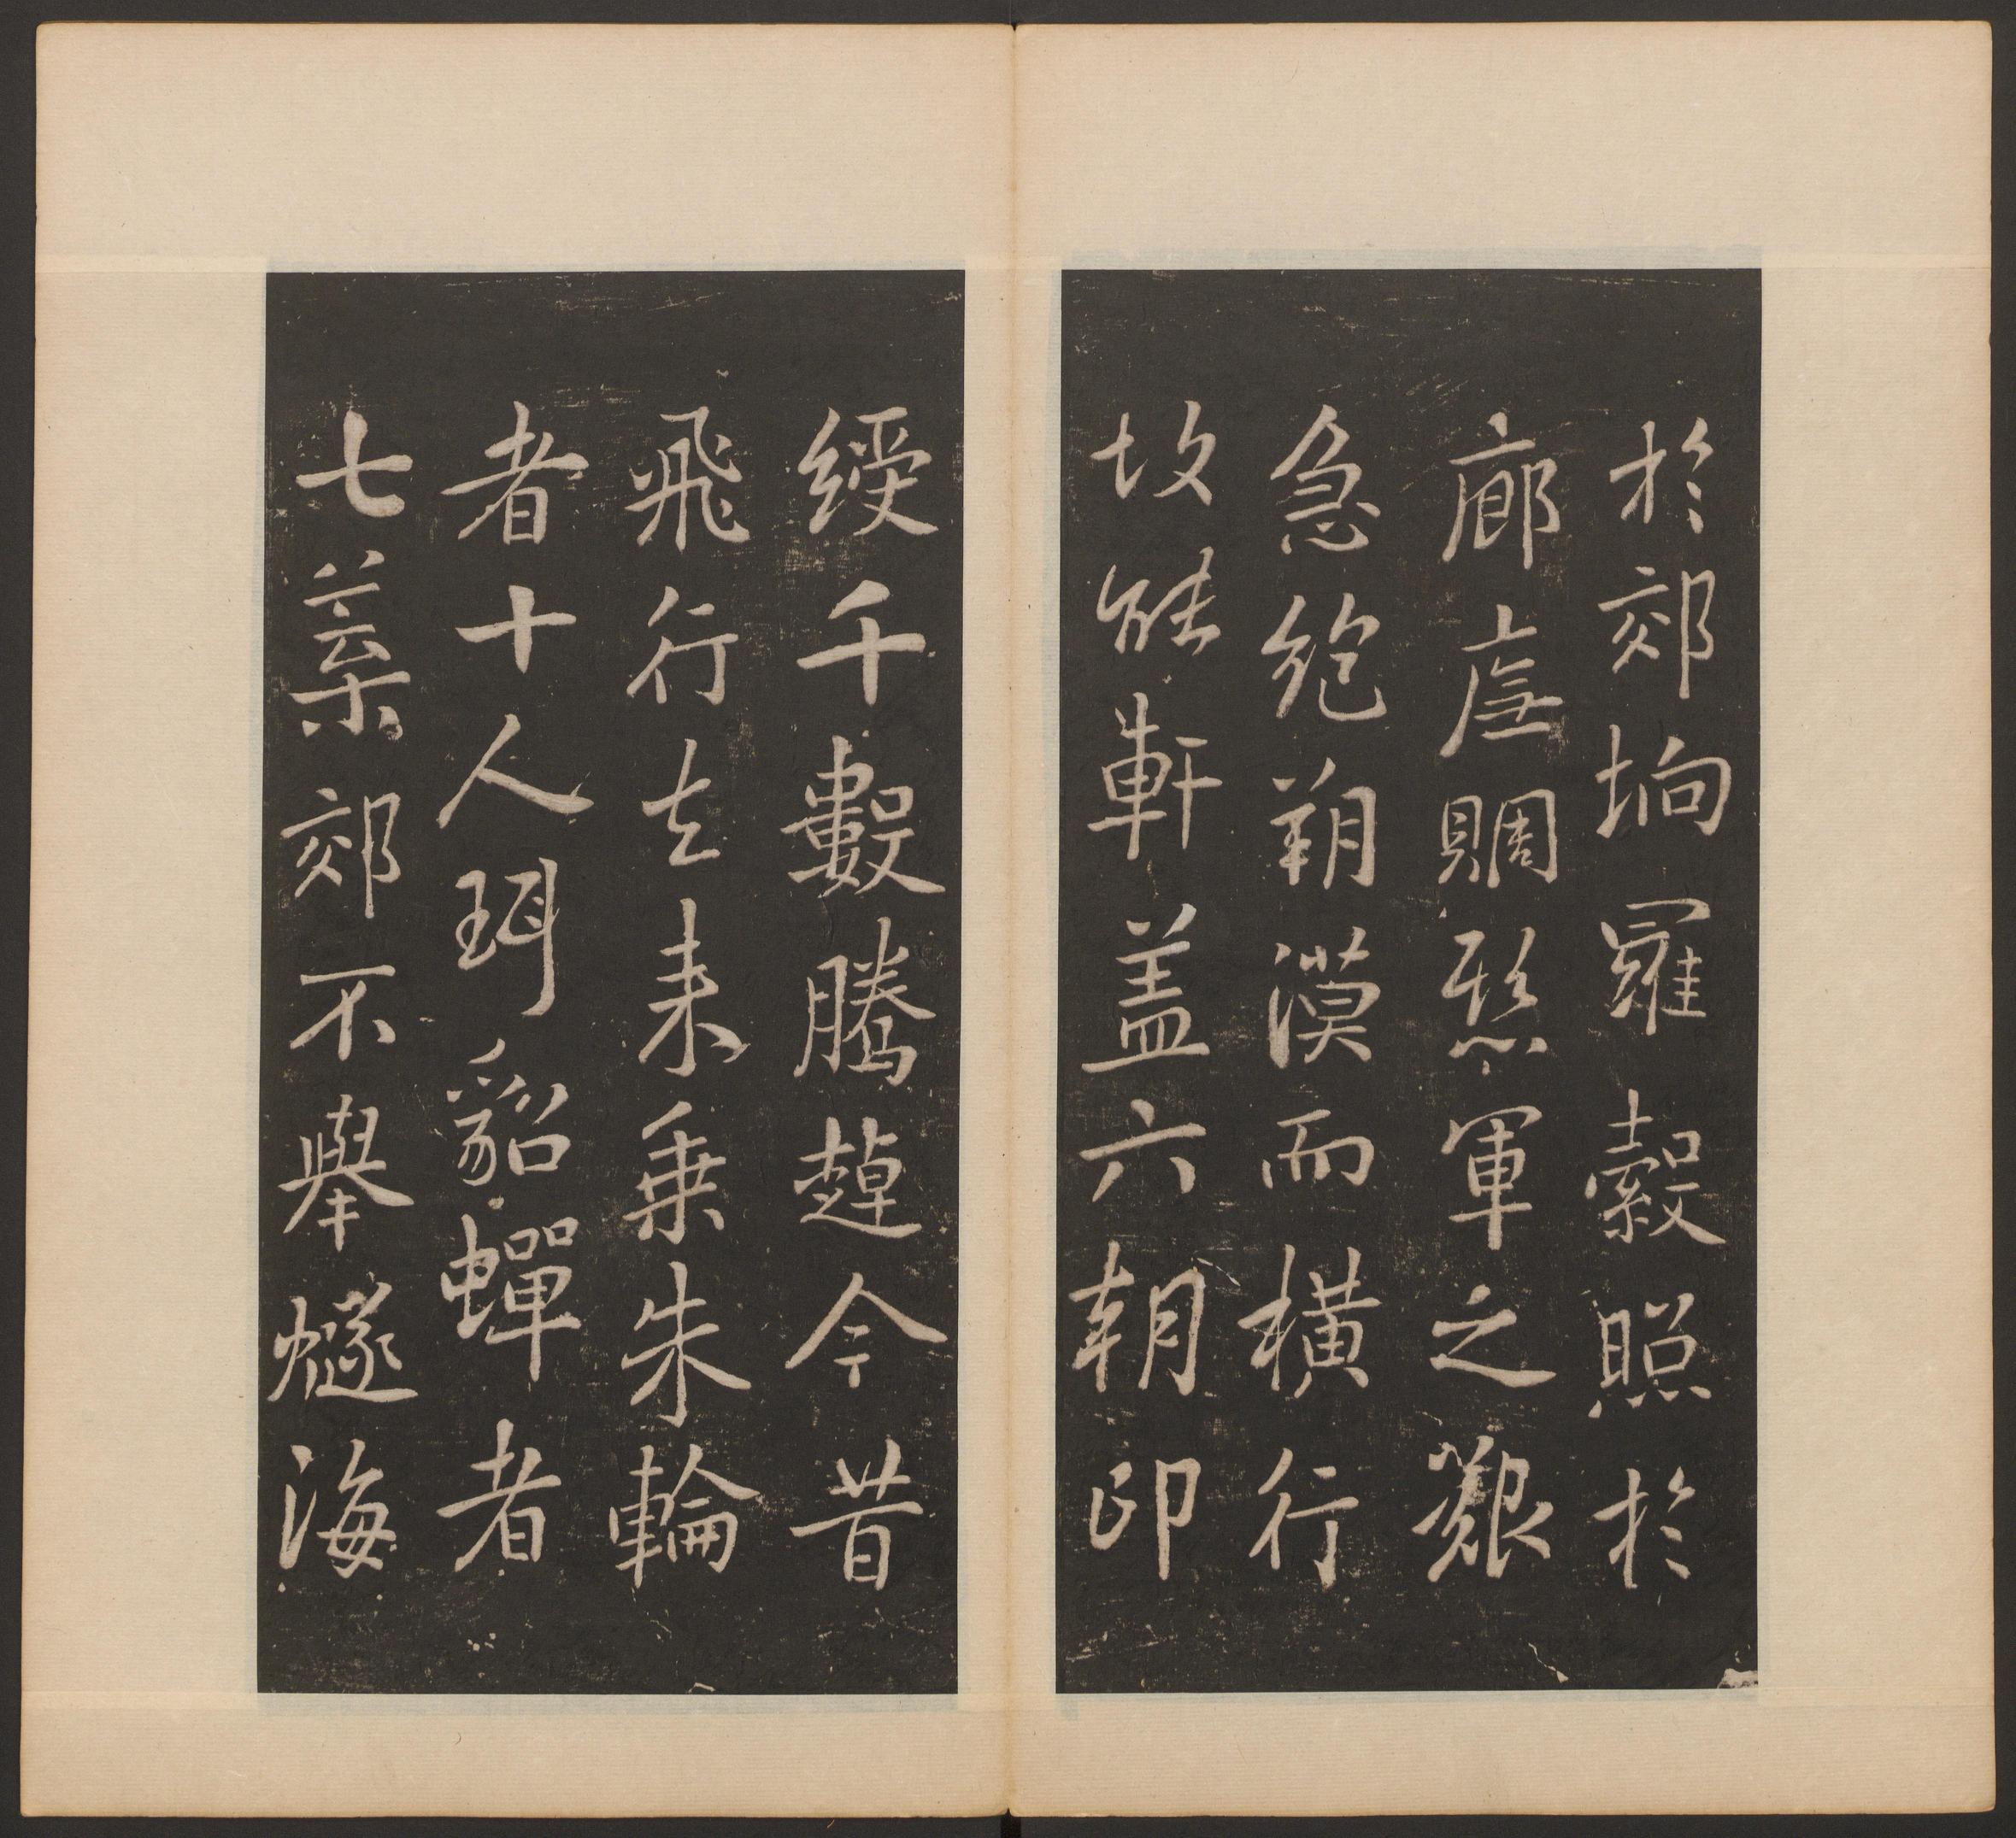 於郊坰羅縠照於
廊廡賙懸軍之艱
急絶朔漠而橫行
故能軒盖六朝印
綬千數騰趠今昔
飛行去来乗朱輪
者十人珥貂蟬者
七葉郊不舉燧海